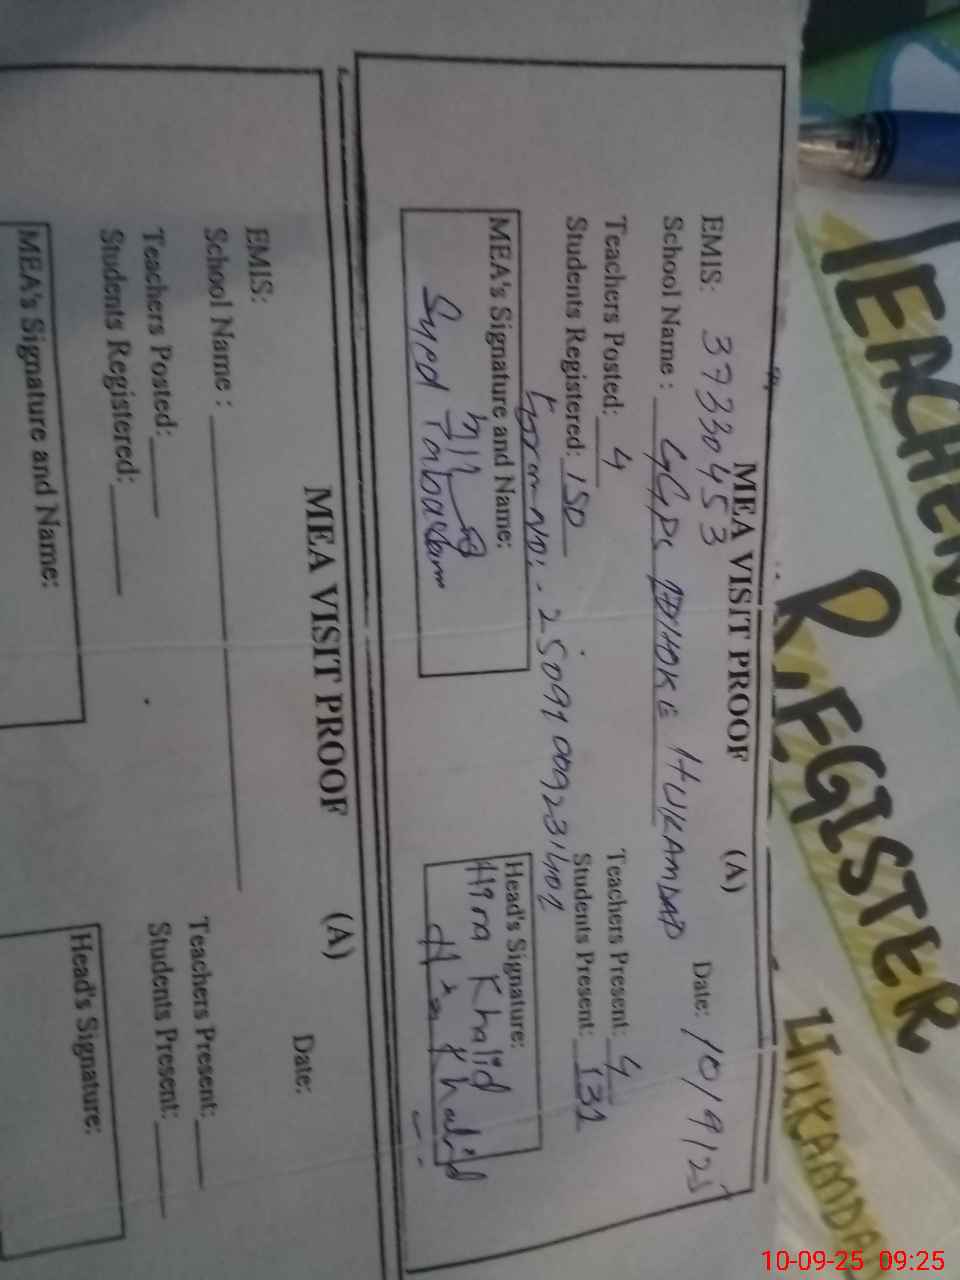 TEACHER
REGISTER
HUKAMDAD
MEA VISIT PROOF (A)
EMIS: 37330453 Date: 10/9/25
School Name : GGPS HUKAMDAD
Teachers Posted: 4 Teachers Present: 4
Students Registered: 150 Students Present: 131
Form No:- 25091009231402
MEA's Signature and Name:
Syed Tabassum
Head's Signature:
Hira Khalid
Hira Khalid
MEA VISIT PROOF (A)
EMIS: Date:
School Name :
Teachers Posted: Teachers Present:
Students Registered: Students Present:
MEA's Signature and Name: Head's Signature:
10-09-25 09:25